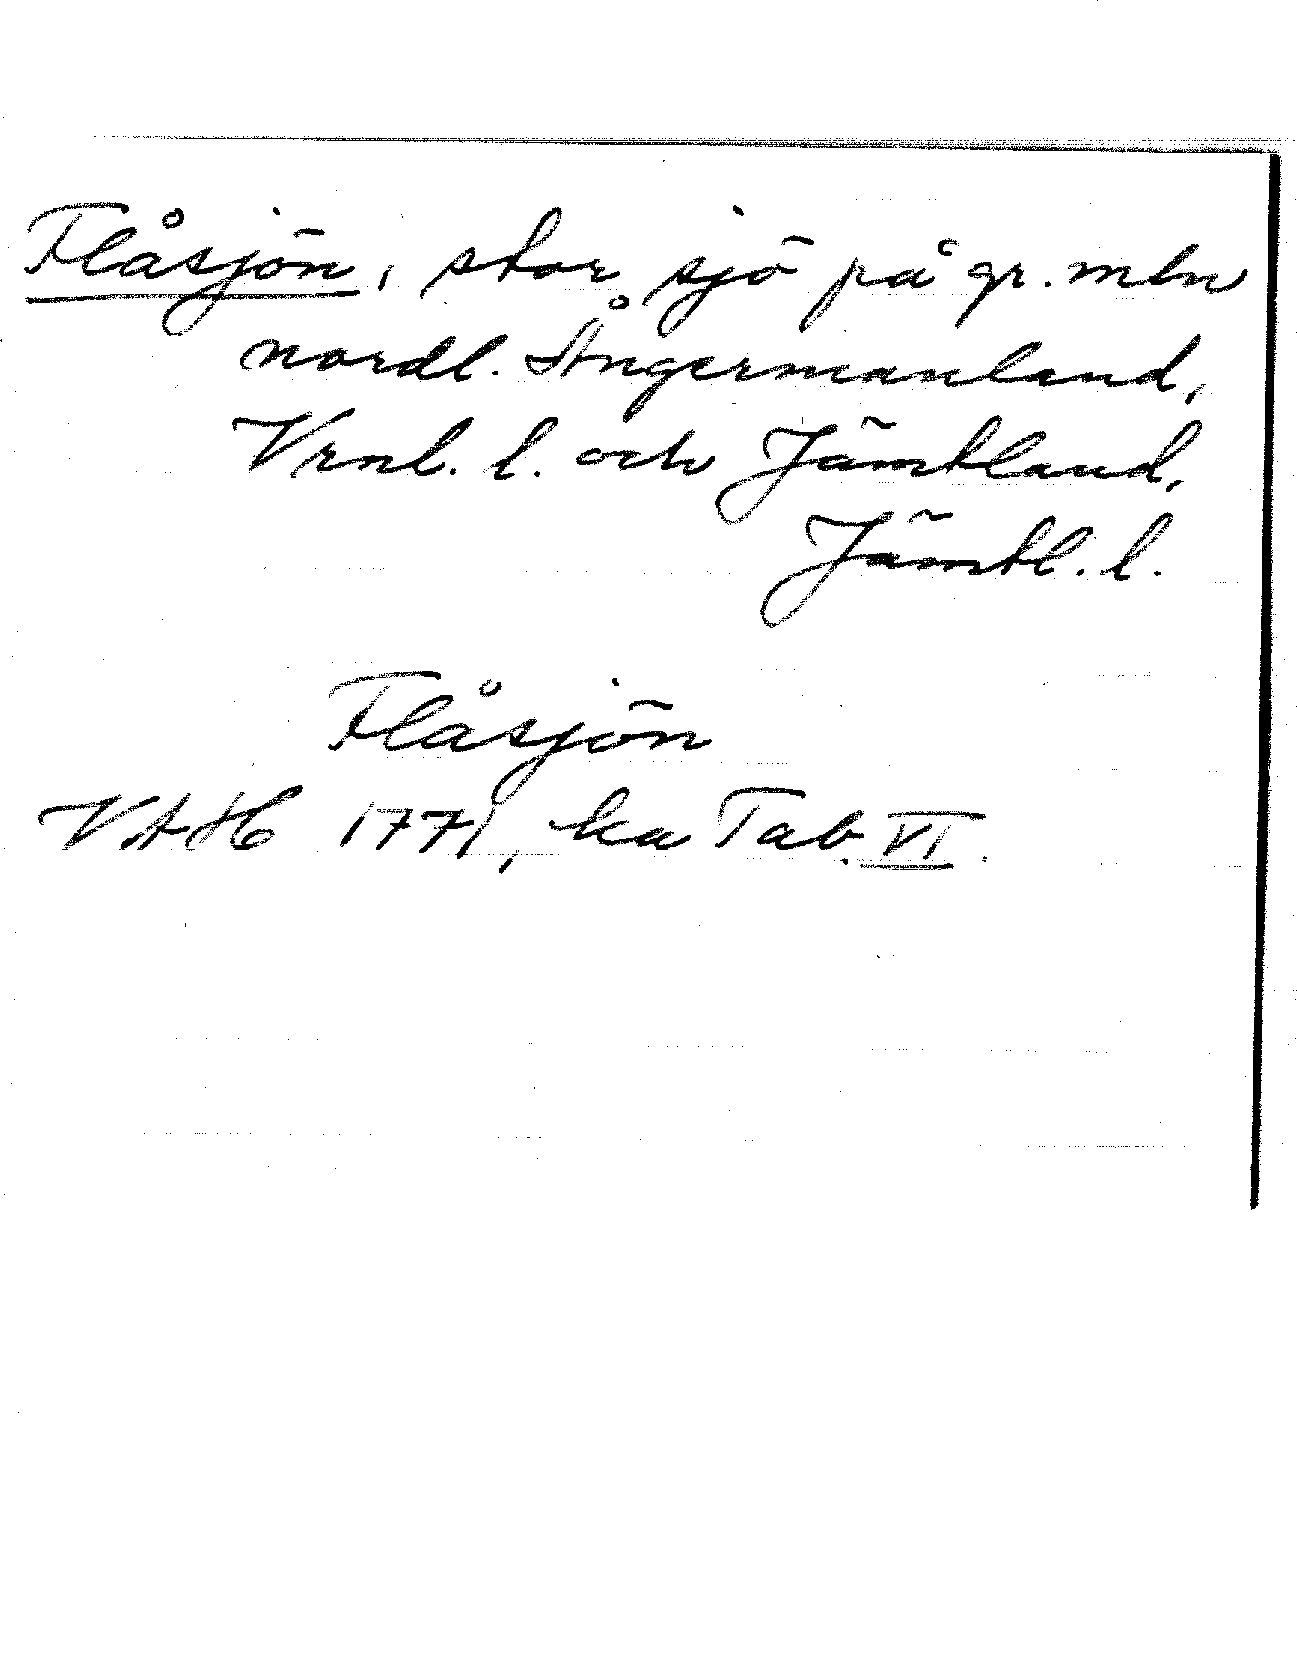 Flåsjön, stor sjö på gr. mln
nordl. Ångermanland,
Vrnl. l. och Jämtland,
Jämtl. l.
Flåsjön
VAH 1771, ka Tab. VI.